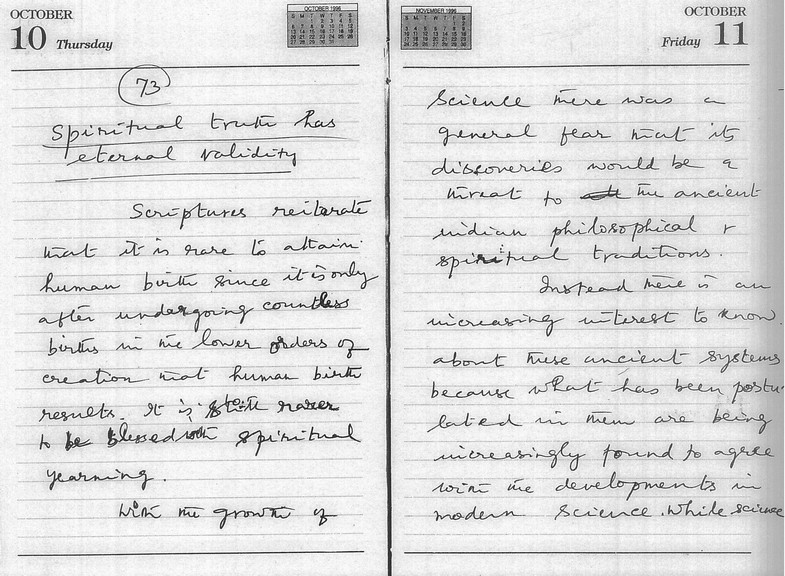 OCTOBER
10 Thursday
OCTOBER 1996
73
Spiritual truth has
eternal validity
Scriptures reiterate
that it is rare to attain
human birth since it is only
after undergoing countless
births in the lower orders of
creation that human birth
results. It is still rarer
to be blessed with spiritual
yearning.
With the growth of
NOVEMBER 1996
OCTOBER
Friday 11
Science there was a
general fear that its
discoveries would be a
threat to the ancient
indian philosophical &
spiritual traditions.
Instead there is an
increasing interest to know
about these ancient systems
because what has been postu-
lated in them are being
increasingly found to agree
with the developments in
modern Science. While science